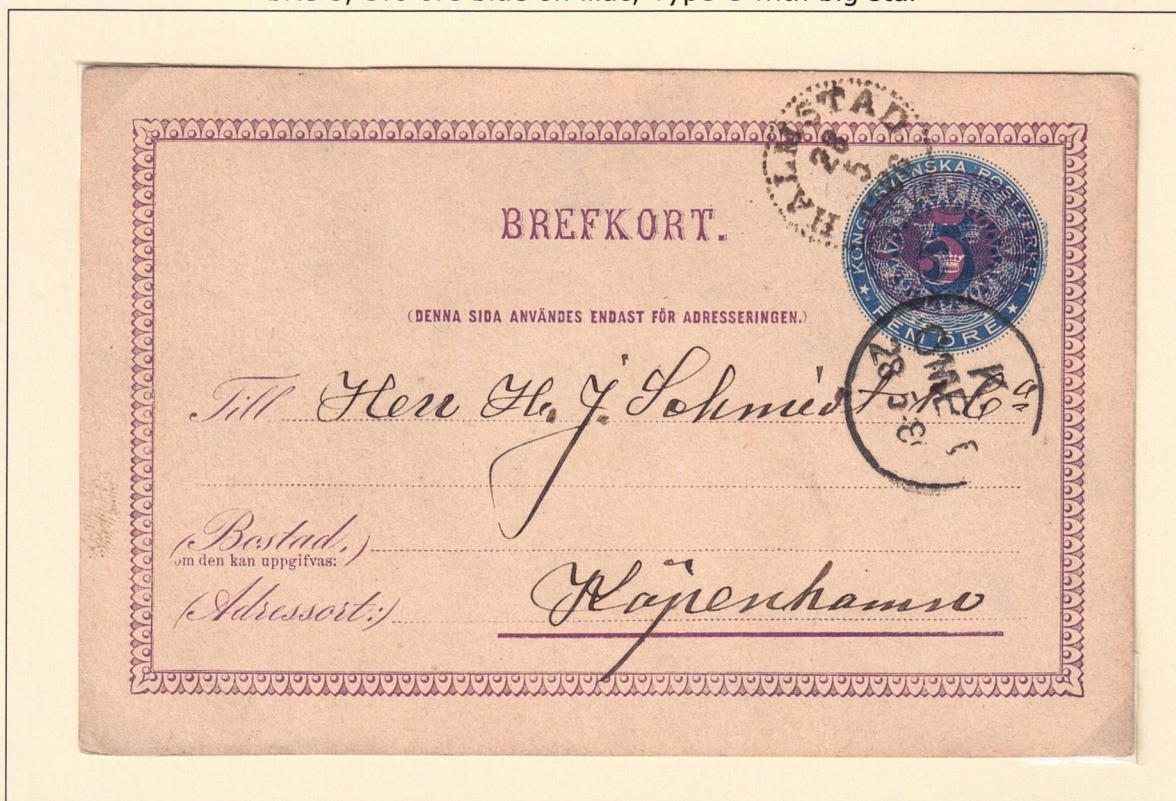 HALMSTAD
28
5
KONGL. SVENSKA POSTVERKET
5
FEM ÖRE
BREFKORT.
(DENNA SIDA ANVÄNDES ENDAST FÖR ADRESSERINGEN.)
K
OMB
28 5
Till Herr H. J. Schmidt & Co
(Bostad,)
om den kan uppgifvas:
(Adressort:) Köpenhamn